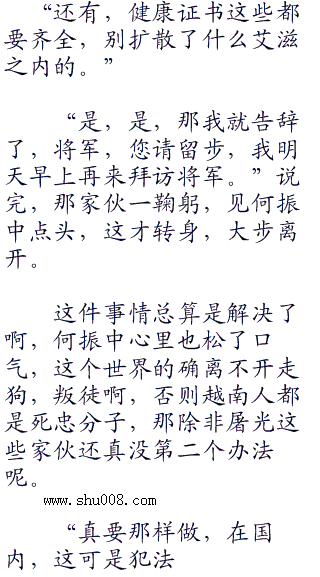 “还有，健康证书这些都
要齐全，别扩散了什么艾滋
之内的。”
“是，是，那我就告辞
了，将军，您请留步，我明
天早上再来拜访将军。”说
完，那家伙一鞠躬，见何振
中点头，这才转身，大步离
开。
这件事情总算是解决了
啊，何振中心里也松了口
气，这个世界的确离不开走
狗，叛徒啊，否则越南人都
是死忠分子，那除非屠光这
些家伙还真没第二个办法
呢。
www.shu008.com
“真要那样做，在国
内，这可是犯法